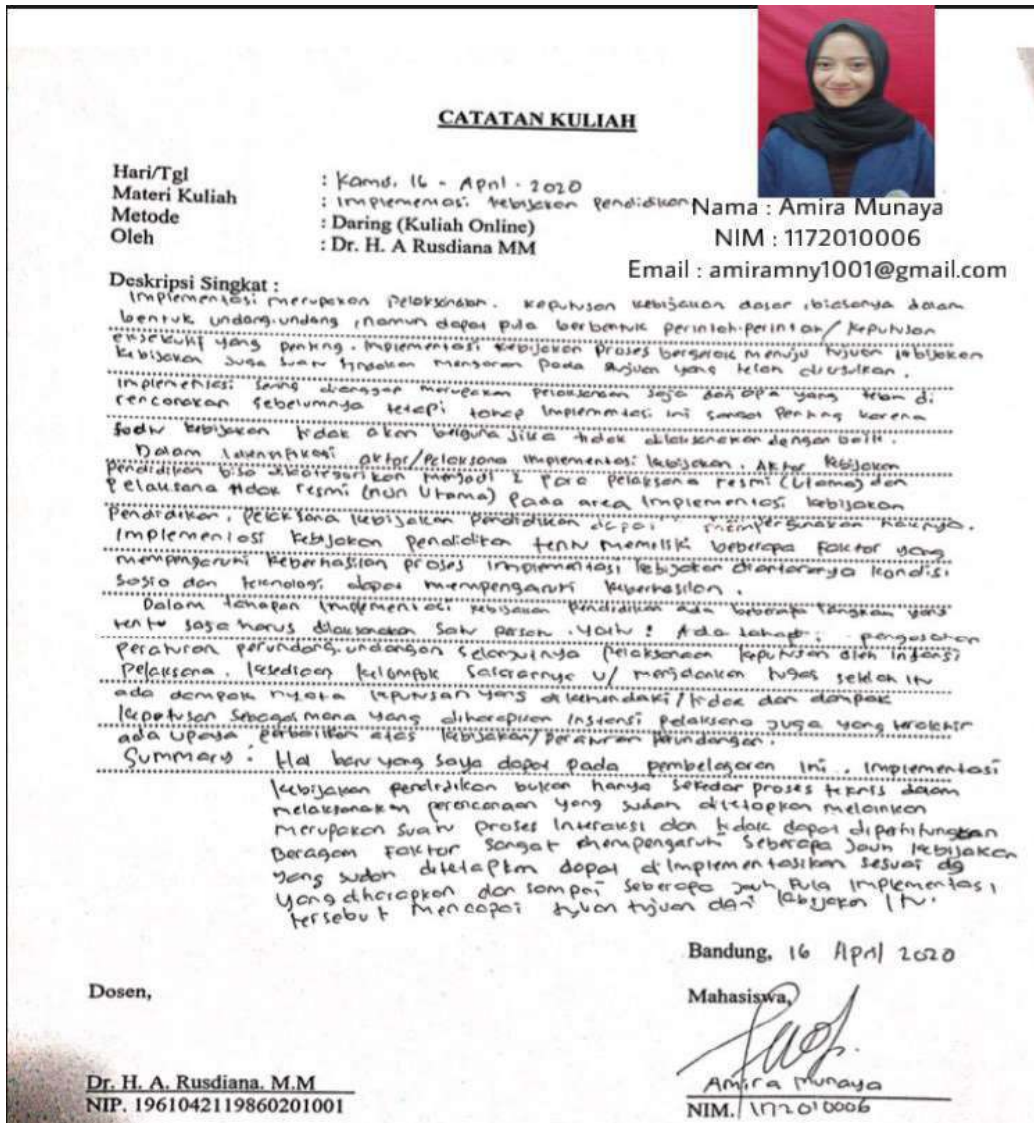 CATATAN KULIAH
Hari/Tgl : Kamis, 16 - April - 2020
Materi Kuliah : Implementasi kebijakan pendidikan
Metode : Daring (Kuliah Online)
Oleh : Dr. H. A Rusdiana MM
Nama : Amira Munaya
NIM : 1172010006
Email : amiramny1001@gmail.com
Deskripsi Singkat :
Implementasi merupakan Pelaksanaan. keputusan kebijakan dasar, biasanya dalam
bentuk undang-undang, namun dapat pula berbentuk perintah-perintah/keputusan
eksekutif yang penting. Implementasi kebijakan proses bergerak menuju tujuan kebijakan
kebijakan juga suatu tindakan pada tujuan yang telah diusulkan.
Implementasi sering dianggap merupakan pelaksanaan saja dari apa yang telah di
rencanakan sebelumnya tetapi tahap Implementasi ini sangat penting karena
suatu kebijakan tidak akan berguna jika tidak dilaksanakan dengan baik.
Dalam Identifikasi aktor/pelaksana implementasi kebijakan. Aktor kebijakan
pendidikan bisa dikategorikan menjadi 2 para pelaksana resmi (Utama) dan
pelaksana tidak resmi (non Utama) Pada area Implementasi kebijakan
Pendidikan. Pelaksana kebijakan pendidikan dapat mempergunakan haknya.
Implementasi kebijakan pendidikan tentu memiliki beberapa Faktor yang
mempengaruhi keberhasilan proses implementasi kebijakan diantaranya kondisi
sosio dan teknologi dapat mempengaruhi keberhasilan.
Dalam tahapan Implementasi kebijakan pendidikan ada beberapa yang
tentu saja harus dilaksanakan satu . Yaitu : Ada tahap : pengesahan
Peraturan perundang-undangan selanjutnya Pelaksanaan keputusan oleh instansi
Pelaksana, kesediaan kelompok u/ menjalankan tugas setelah itu
ada dampak nyata keputusan yang dikehendaki/tidak dan dampak
keputusan sebagaimana yang diharapkan Instansi pelaksana juga yang terakhir
ada upaya perbaikan atas kebijakan/peraturan perundangan.
Summary : Hal baru yang saya dapat pada pembelajaran ini. Implementasi
kebijakan pendidikan bukan hanya sekedar proses teknis dalam
melaksanakan perencanaan yang sudah ditetapkan melainkan
merupakan suatu proses Interaksi dan tidak dapat diperhitungkan
Beragam Faktor sangat mempengaruhi seberapa jauh kebijakan
yang sudah ditetapkan dapat diimplementasikan sesuai dg
yang diharapkan dan sampai seberapa jauh pula implementasi
tersebut mencapai tujuan dari kebijakan itu.
Bandung, 16 April 2020
Dosen,
Mahasiswa,
Dr. H. A. Rusdiana. M.M
NIP. 1961042119860201001
Amira Munaya
NIM. 1172010006